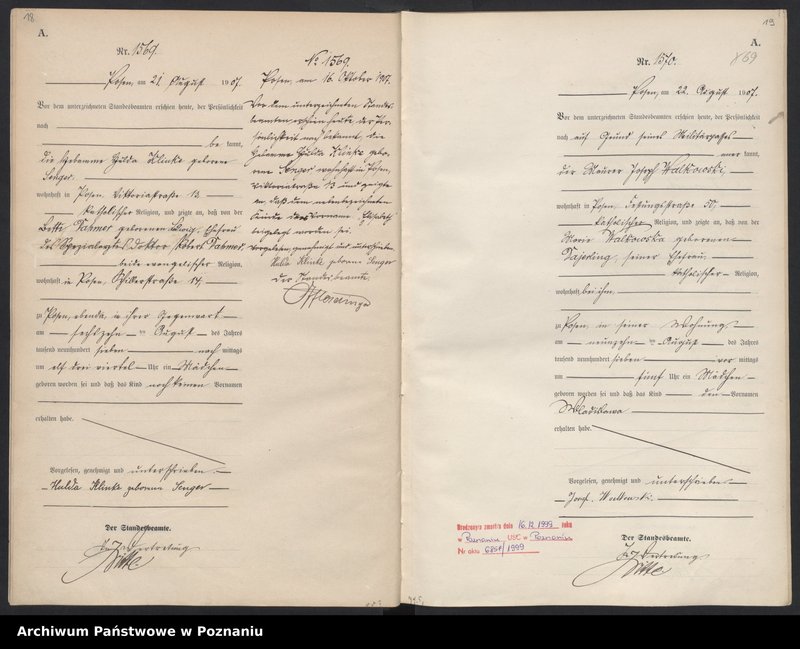 18
A.
Nr. 1569.
Posen, am 21. August 1907.
Vor dem unterzeichneten Standesbeamten erschien heute, der Persönlichkeit
nach
be kannt,
die Hebamme Hulda Klinke geborene
Senger.
wohnhaft in Posen, Viktoriastraße 13.
katholischer Religion, und zeigte an, daß von der
geborenen Ehefrau
des Spezialarztes, Doktor Robert
beide evangelischer Religion,
wohnhaft in Posen, Schillerstraße 14,
zu Posen, ebenda, in ihrer Gegenwart
am sechszehnten August des Jahres
tausend neunhundert sieben nach mittags
um elf drei viertel Uhr ein Mädchen
geboren worden sei und daß das Kind noch keinen Vornamen
erhalten habe.
Vorgelesen, genehmigt und unterschrieben
Hulda Klinke geborene Senger
Der Standesbeamte.
In Vertretung
Witte
No 1569.
Posen, am 16. Oktober 1907.
Vor dem unterzeichneten Standes
beamten erschien heute, der Per
sönlichkeit nach bekannt, die
Hebamme Hulda Klinke gebo
rene Senger wohnhaft in Posen,
Viktoriastraße 13 und zeigte
an, daß dem nebenbezeichneten
Kinde der Vorname Elisabeth
beigelegt worden sei.
Vorgelesen, genehmigt und unterschrieben
Hulda Klinke geborene Senger
Der Standesbeamte.
19
A.
Nr. 1570.
Posen, am 22. August 1907.
Vor dem unterzeichneten Standesbeamten erschien heute, der Persönlichkeit
nach auf Grund seines Militärpasses
aner kannt,
der Maurer Joseph Walkowski,
wohnhaft in Posen, 50,
katholischer Religion, und zeigte an, daß von der
Marie Walkowska geborenen
seiner Ehefrau,
katholischer Religion,
wohnhaft bei ihm,
zu Posen in seiner Wohnung
am neunzehnten August des Jahres
tausend neunhundert sieben vor mittags
um fünf Uhr ein Mädchen
geboren worden sei und daß das Kind den Vornamen
Wladislawa
erhalten habe.
Vorgelesen, genehmigt und unterschrieben
Jozef Walkowski.
Der Standesbeamte.
In Vertretung
Witte
Urodzonego zmarła dnia 16.12.1999 roku
w Poznaniu USC w Poznaniu
Nr aktu /1999
Archiwum Państwowe w Poznaniu